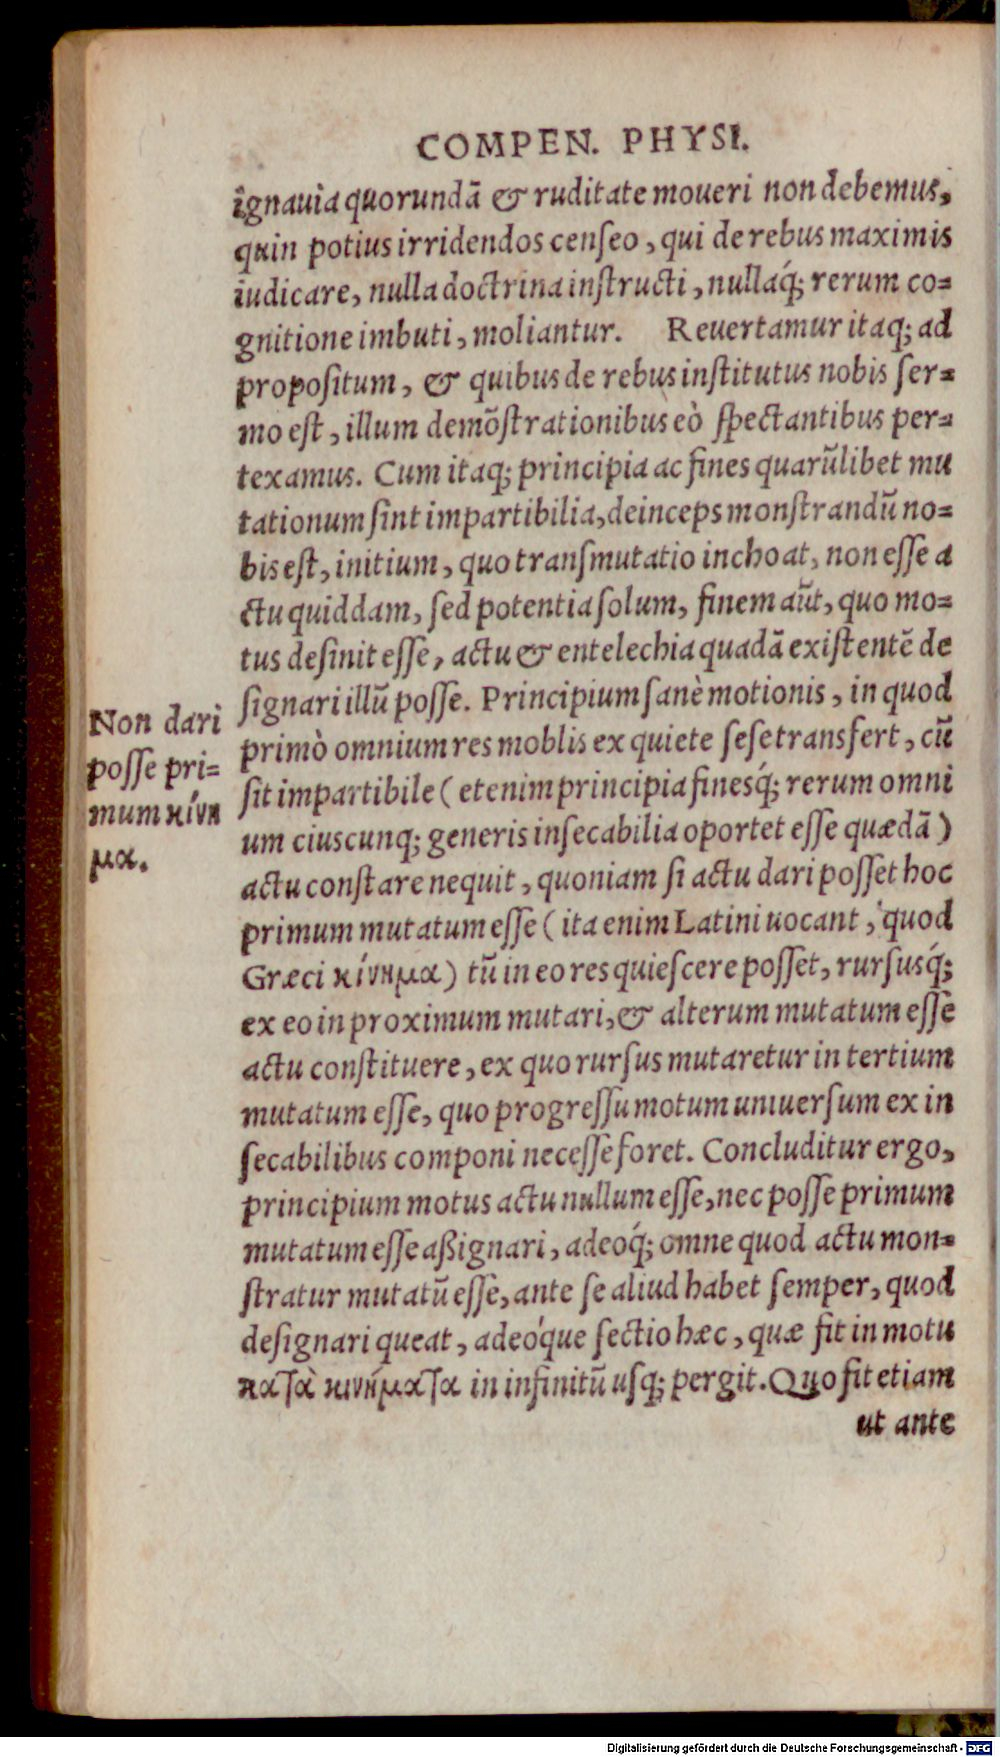 COMPEN. PHYSI.
ignauia quorundã & ruditate moueri non debemus,
quin potius irridendos censeo, qui de rebus maximis
iudicare, nulla doctrina instructi, nullaq́; rerum co=
gnitione imbuti, moliantur. Reuertamur itaq; ad
propositum, & quibus de rebus institutus nobis ser=
mo est, illum demõstrationibus eò spectantibus per=
texamus. Cum itaq; principia ac fines quarũlibet mu
tationum sint impartibilia, deinceps monstrandũ no=
bis est, initium, quo transmutatio inchoat, non esse a
ctu quiddam, sed potentia solum, finem aũt, quo mo=
tus desinit esse, actu & entelechia quadã existentẽ de
signari illũ posse. Principium sanè motionis, in quod
primò omnium res moblis ex quiete sese transfert, cũ
sit impartibile (etenim principia finesq́; rerum omni
um ciuscunq; generis insecabilia oportet esse quædã)
actu constare nequit, quoniam si actu dari posset hoc
primum mutatum esse (ita enim Latini uocant, quod
Græci κίνημα) tũ in eo res quiescere posset, rursusq́;
ex eo in proximum mutari, & alterum mutatum esse
actu constituere, ex quo rursus mutaretur in tertium
mutatum esse, quo progressu motum uniuersum ex in
secabilibus componi necesse foret. Concluditur ergo,
principium motus actu nullum esse, nec posse primum
mutatum esse aßignari, adeoq́; omne quod actu mon=
stratur mutatũ esse, ante se aliud habet semper, quod
designari queat, adeóque sectio hæc, quæ fit in motu
κατὰ κινήματα in infinitũ usq; pergit. Quo fit etiam
ut ante
Non dari
posse pri=
mum κίνη
μα.
Digitalisierung gefördert durch die Deutsche Forschungsgemeinschaft - DFG